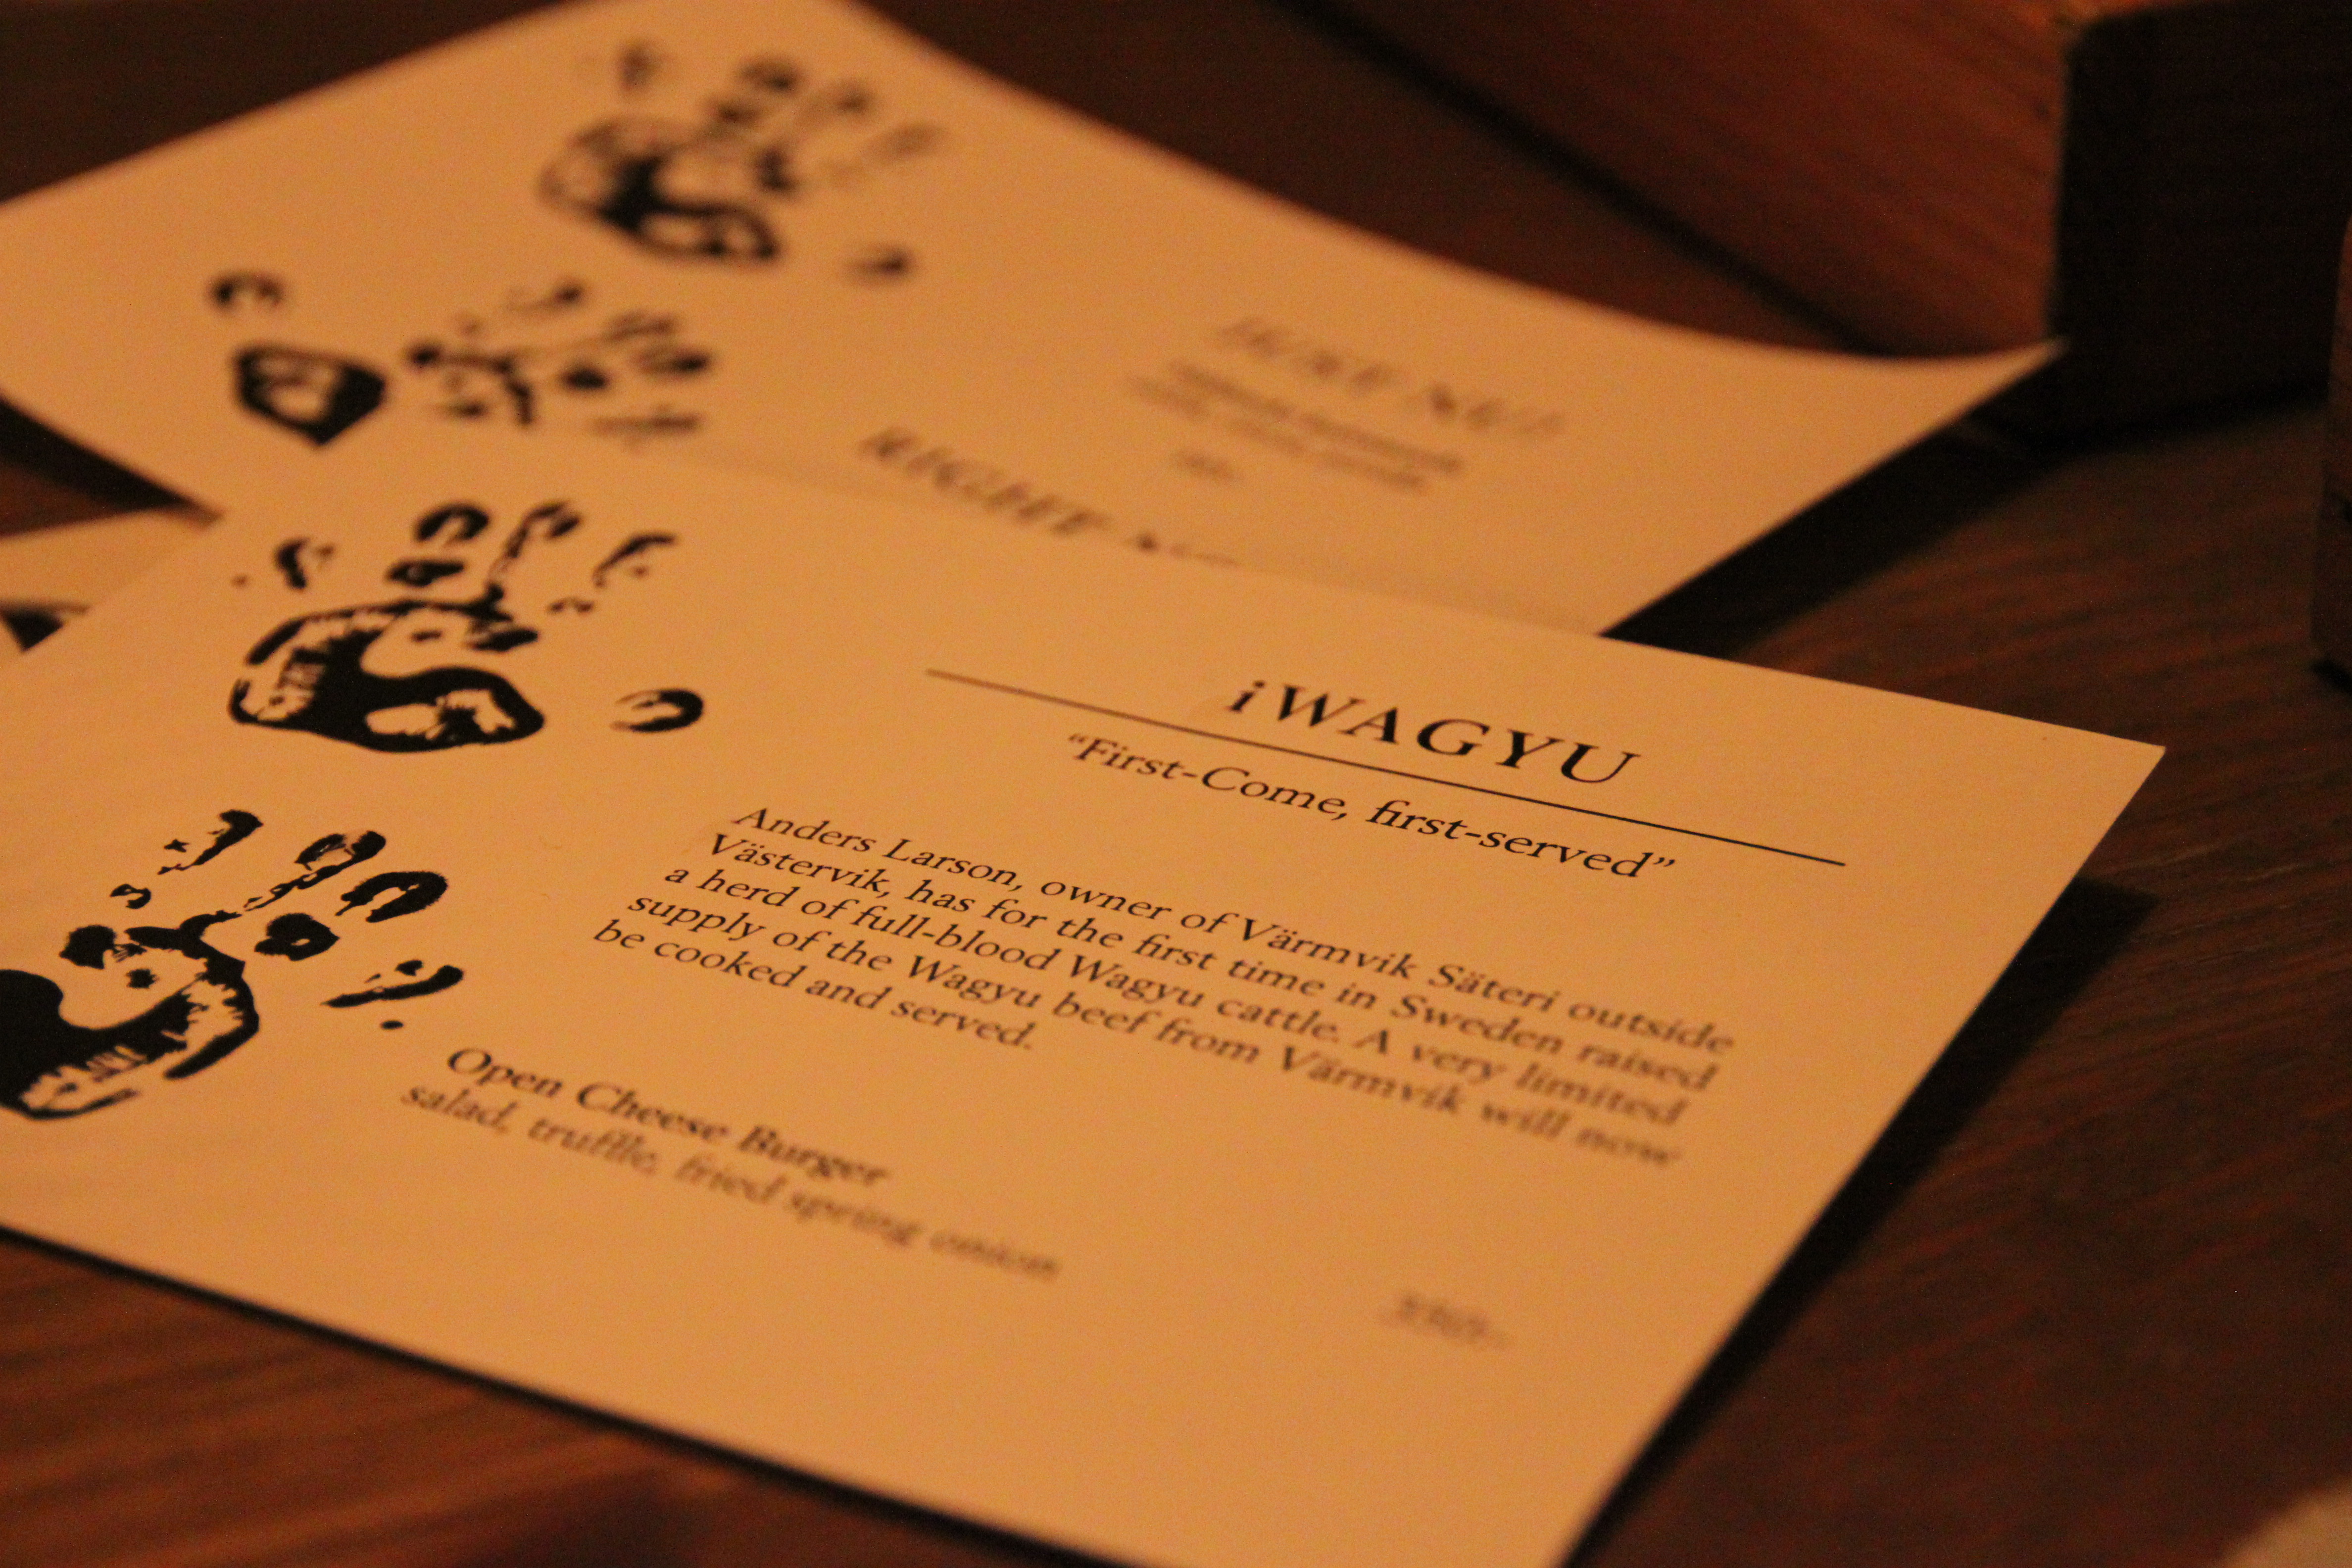 RIGHT
iWAGYU
“First-Come, first-served”
Anders Larson, owner of Värmvik Säteri outside
Västervik, has for the first time in Sweden raised
a herd of full-blood Wagyu cattle. A very limited
supply of the Wagyu beef from Värmvik will now
be cooked and served.
Open Cheese Burger
salad, truffle, fried spring onion